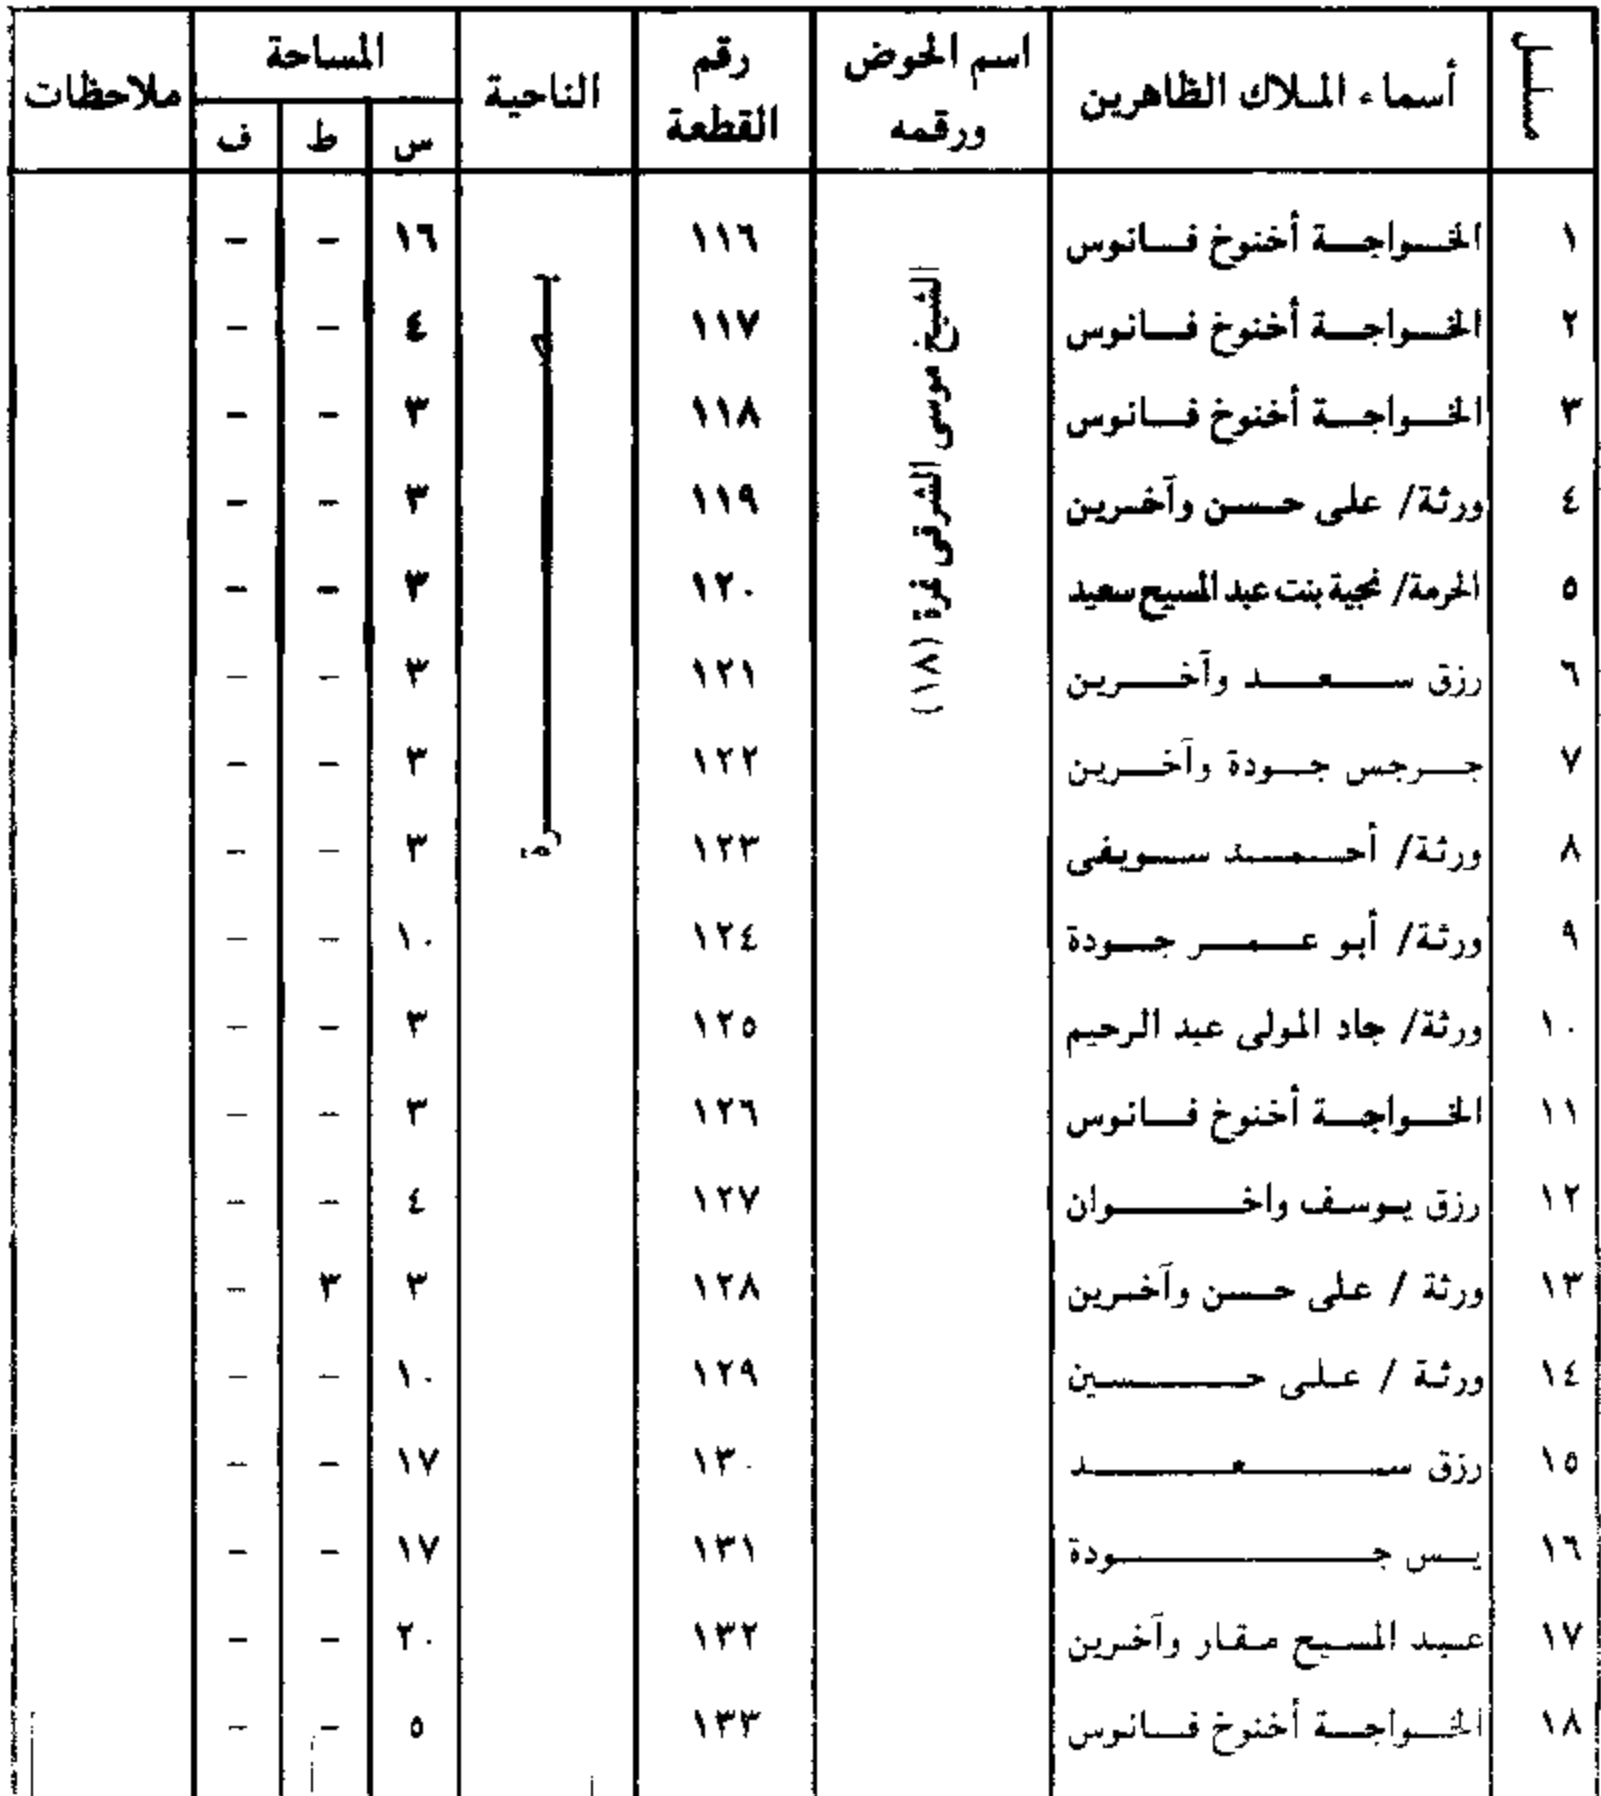 مسلسل | أسماء الملاك الظاهرين | اسم الحوض ورقمه | رقم القطعة | الناحية | المساحة | ملاحظات
س | ط | ف
الشيخ موسى الشرقى نمرة (١٨)
١ | الخواجة أخنوخ فانوس | ١١٦ | ١٦ | – | –
٢ | الخواجة أخنوخ فانوس | ١١٧ | ٤ | – | –
٣ | الخواجة أخنوخ فانوس | ١١٨ | ٣ | – | –
٤ | ورثة/ على حسن وآخرين | ١١٩ | ٣ | – | –
٥ | الحرمة/ نجية بنت عبد المسيح سعيد | ١٢٠ | ٣ | – | –
٦ | رزق سعد وآخرين | ١٢١ | ٣ | – | –
٧ | جرجس جودة وآخرين | ١٢٢ | ٣ | – | –
٨ | ورثة/ أحمد سويفى | ١٢٣ | ٣ | – | –
٩ | ورثة/ أبو عمر جودة | ١٢٤ | ١٠ | – | –
١٠ | ورثة/ جاد المولى عبد الرحيم | ١٢٥ | ٣ | – | –
١١ | الخواجة أخنوخ فانوس | ١٢٦ | ٣ | – | –
١٢ | رزق يوسف واخوان | ١٢٧ | ٤ | – | –
١٣ | ورثة / على حسن وآخرين | ١٢٨ | ٣ | ٣ | –
١٤ | ورثة / على حسين | ١٢٩ | ١٠ | – | –
١٥ | رزق سعد | ١٣٠ | ١٧ | – | –
١٦ | يس جودة | ١٣١ | ١٧ | – | –
١٧ | عبد المسيح مقار وآخرين | ١٣٢ | ٢٠ | – | –
١٨ | الخواجة أخنوخ فانوس | ١٣٣ | ٥ | – | –